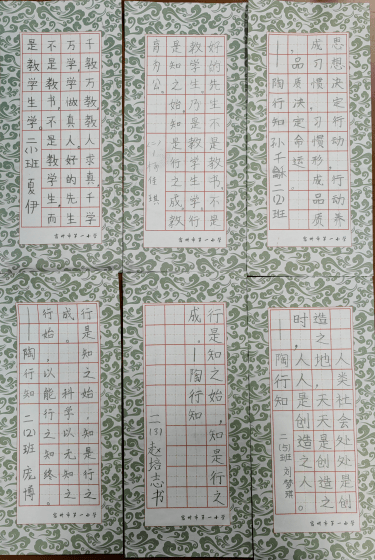 千教万教教人求真,千学
万学学做真人。好的先生
不是教书,不是教学生,而
是教学生学。
班 夏伊
好的先生不是教书,不是
教学生,乃是教学生学。行
是知之始,知是行之成。教
育为公。
佳琪
思想决定行动,行动养
成习惯,习惯形成品质
,品质决定命运。
——陶行知 孙千 二(2)班
行是知之始,知是行之
成。 科学以无知之
行始,以能行之知终
——陶行知 二(2)班 庞博
行是知之始,知是行之
成。——陶行知
二(5) 赵培志书
人类社会处处是创
造之地,天天是创造之
时,人人是创造之人。
——陶行知
二(5)班 刘梦